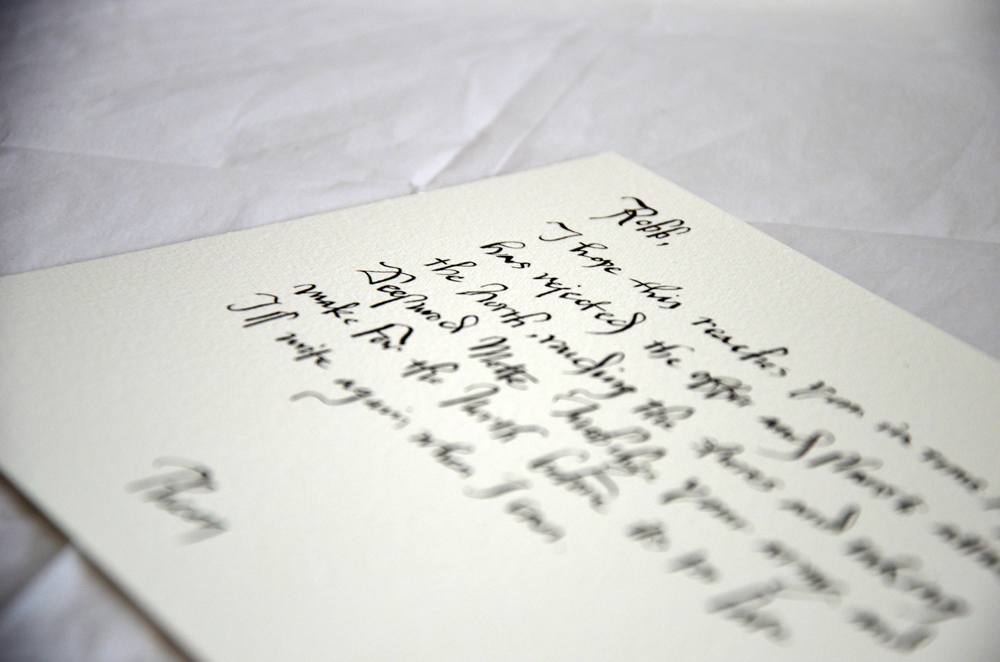 Robb,
I hope this reaches you in
has rejected the offer and plans
the North, raiding the shores and taking
Deepwood Motte. Gather your army and
make for the North before
I'll write again when I can
Theon